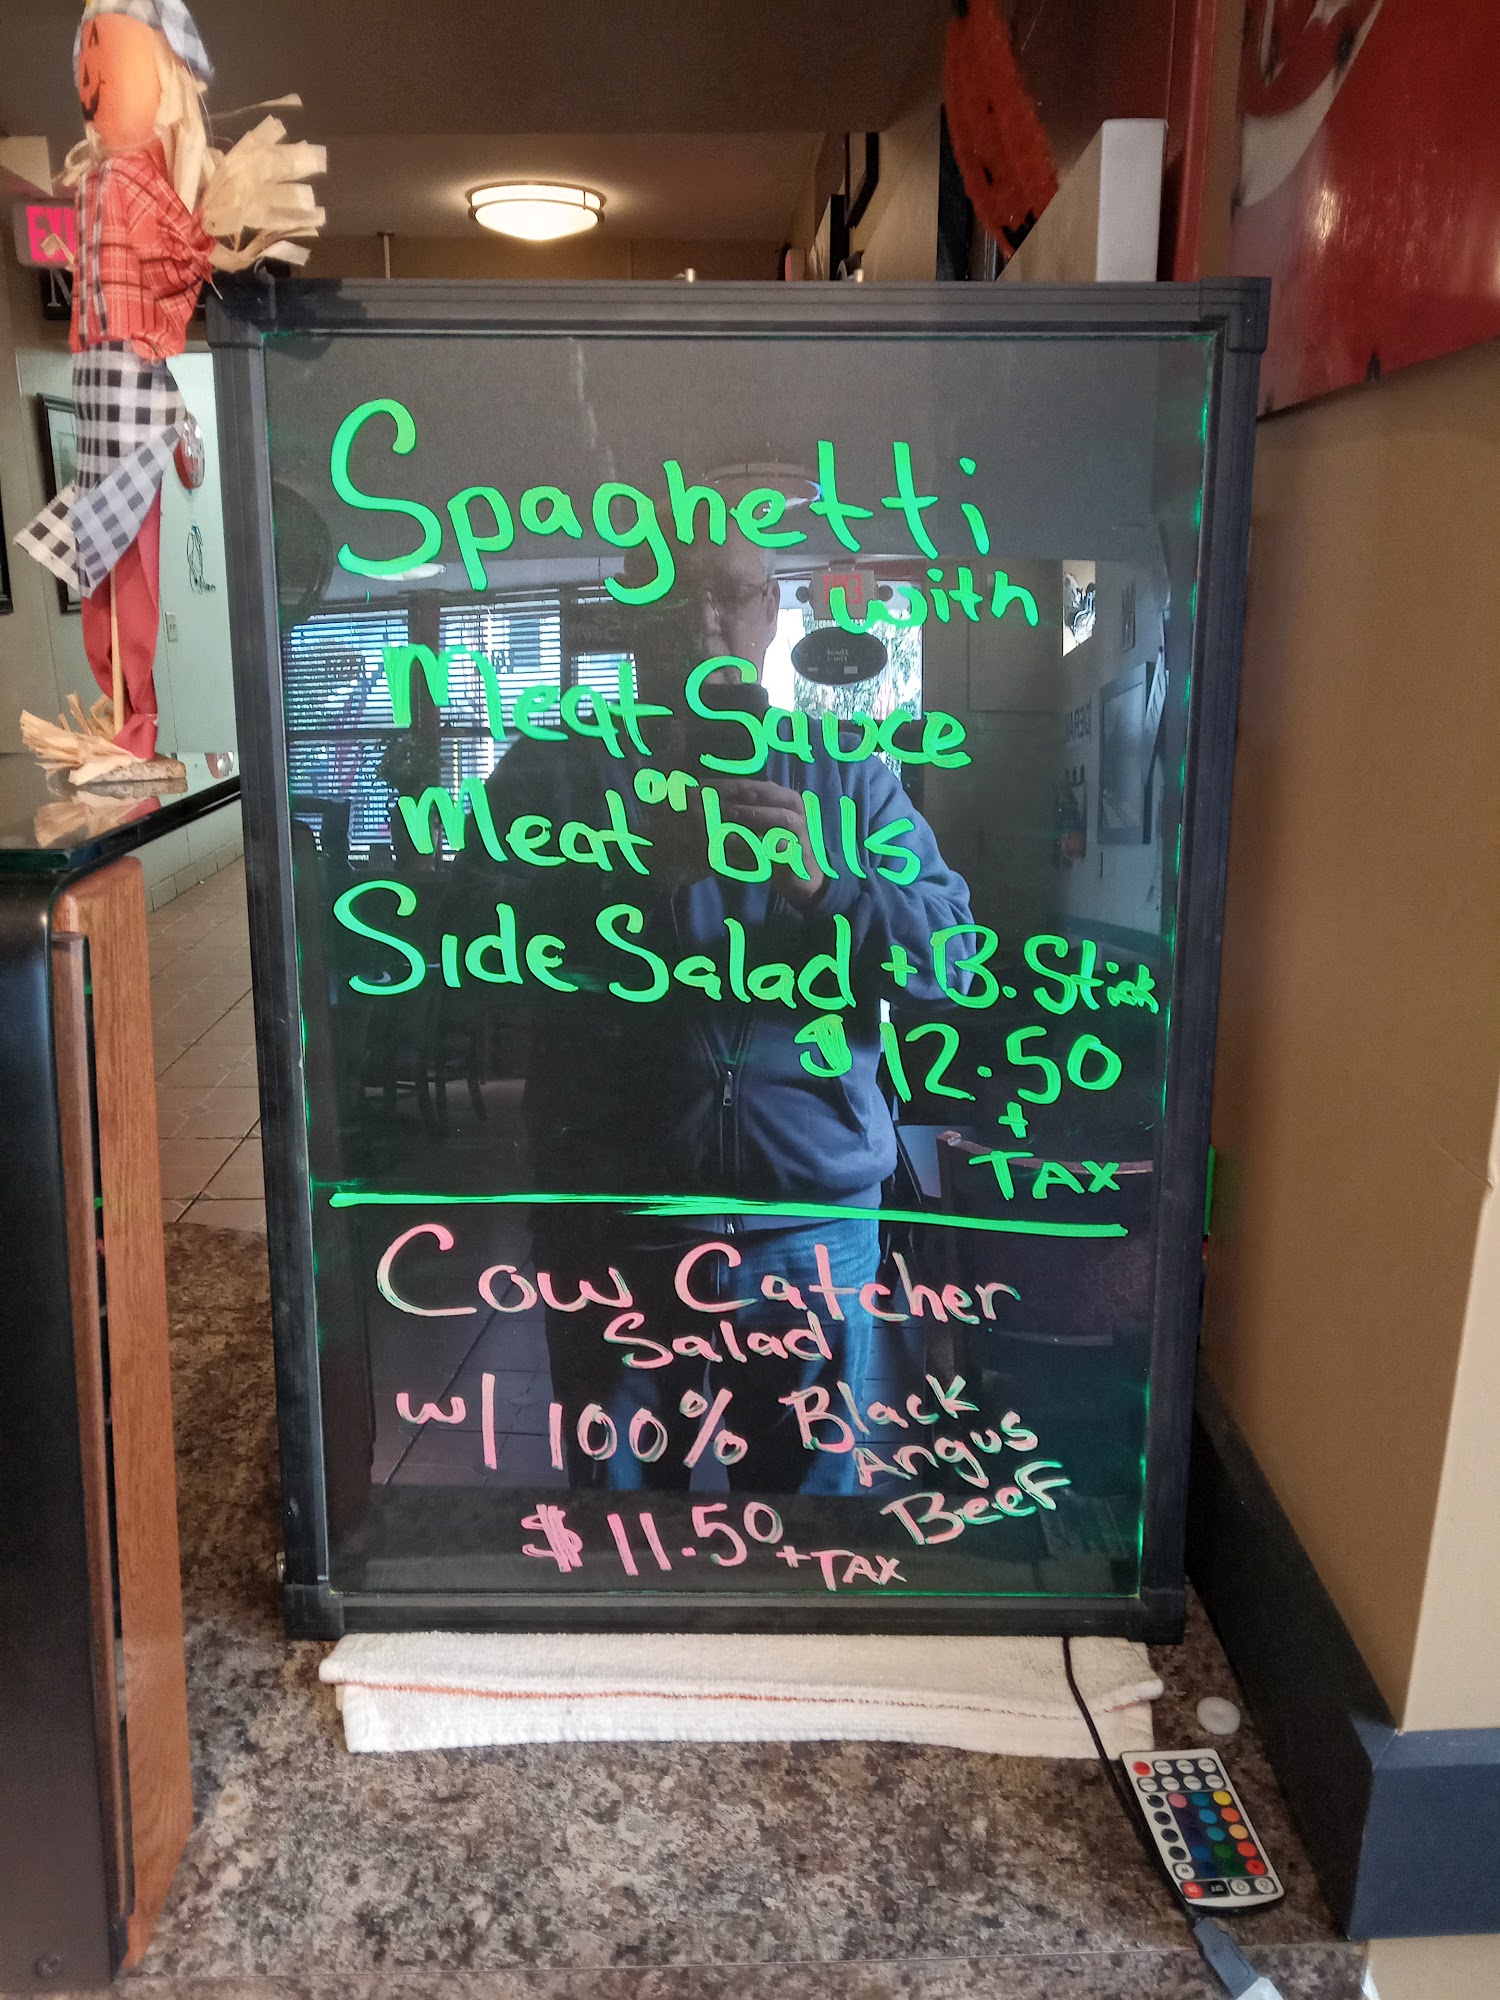 Spaghetti
with
Meat Sauce
or
Meat balls
Side Salad + B. Stick
$12.50
+
TAX
Cow Catcher
Salad
w/ 100% Black
Angus
Beef
$11.50 + TAX